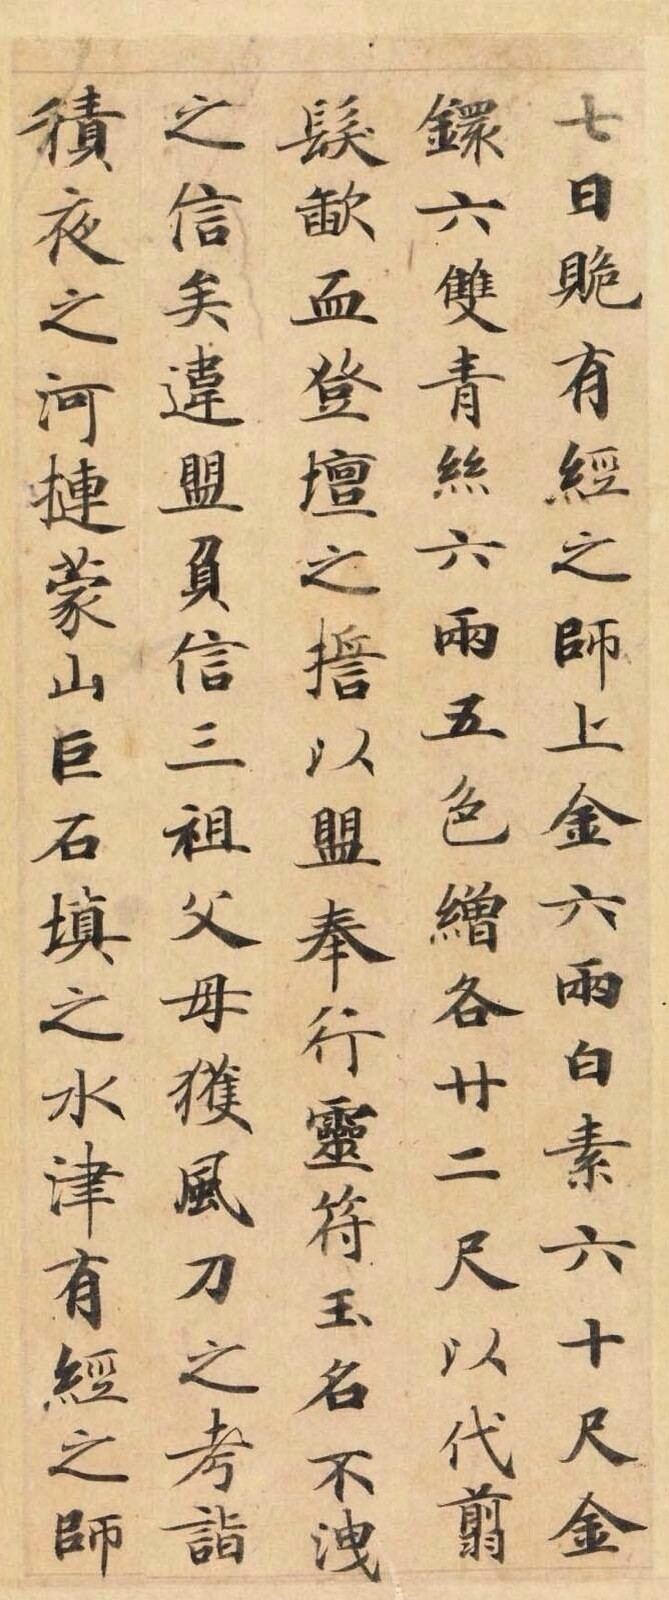 七日貱有經之師上金六兩白素六十尺金
鐶六雙青絲六兩五色繒各廿二尺以代翦
髮歃血登壇之擔以盟奉行靈符玉名不洩
之信矣違盟負信三祖父母獲風刀之考詣
積夜之河摙蒙山巨石填之水津有經之師